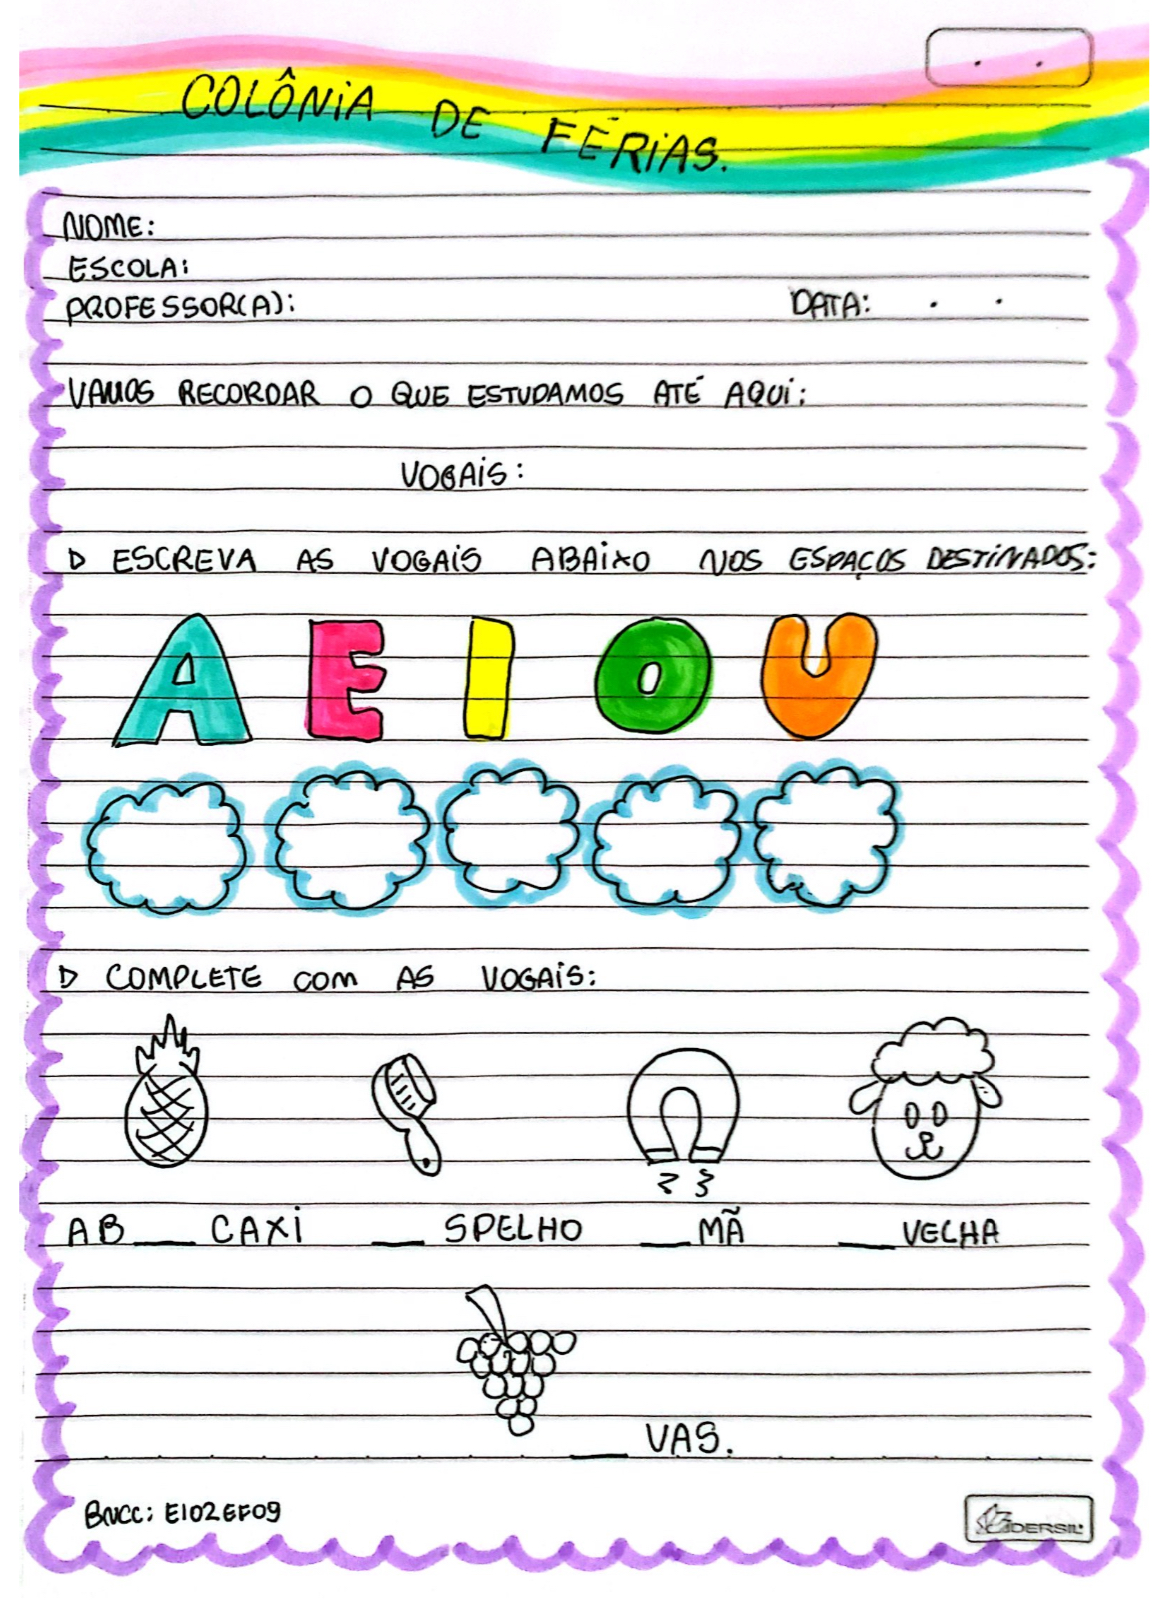 COLÔNIA DE FÉRIAS.
NOME:
ESCOLA:
PROFESSOR(A): DATA: . .
VAMOS RECORDAR O QUE ESTUDAMOS ATÉ AQUI:
VOGAIS:
ESCREVA AS VOGAIS ABAIXO NOS ESPAÇOS DESTINADOS:
A E I O U
COMPLETE COM AS VOGAIS:
AB___CAXI ___SPELHO ___MÃ ___VELHA
___VAS.
BNCC: EI02EF09